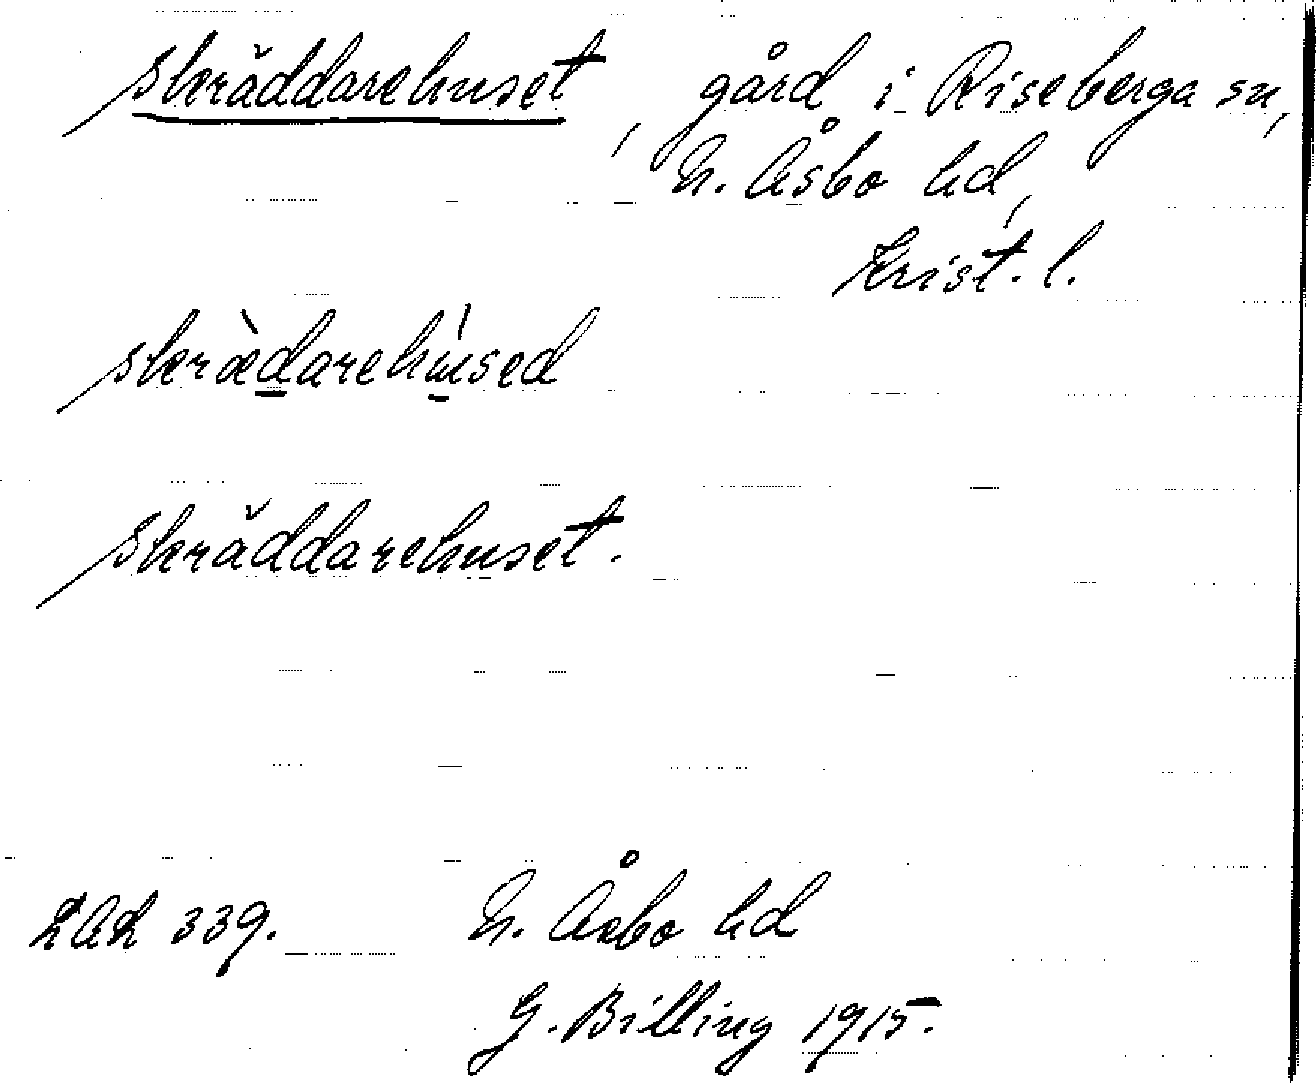 Skräddarehuset, gård i Riseberga sn,
N. Åsbo hd,
Krist. l.
skræ̀darehúsed
Skräddarehuset.
LAL 339. N. Åsbo hd
G. Billing 1915.